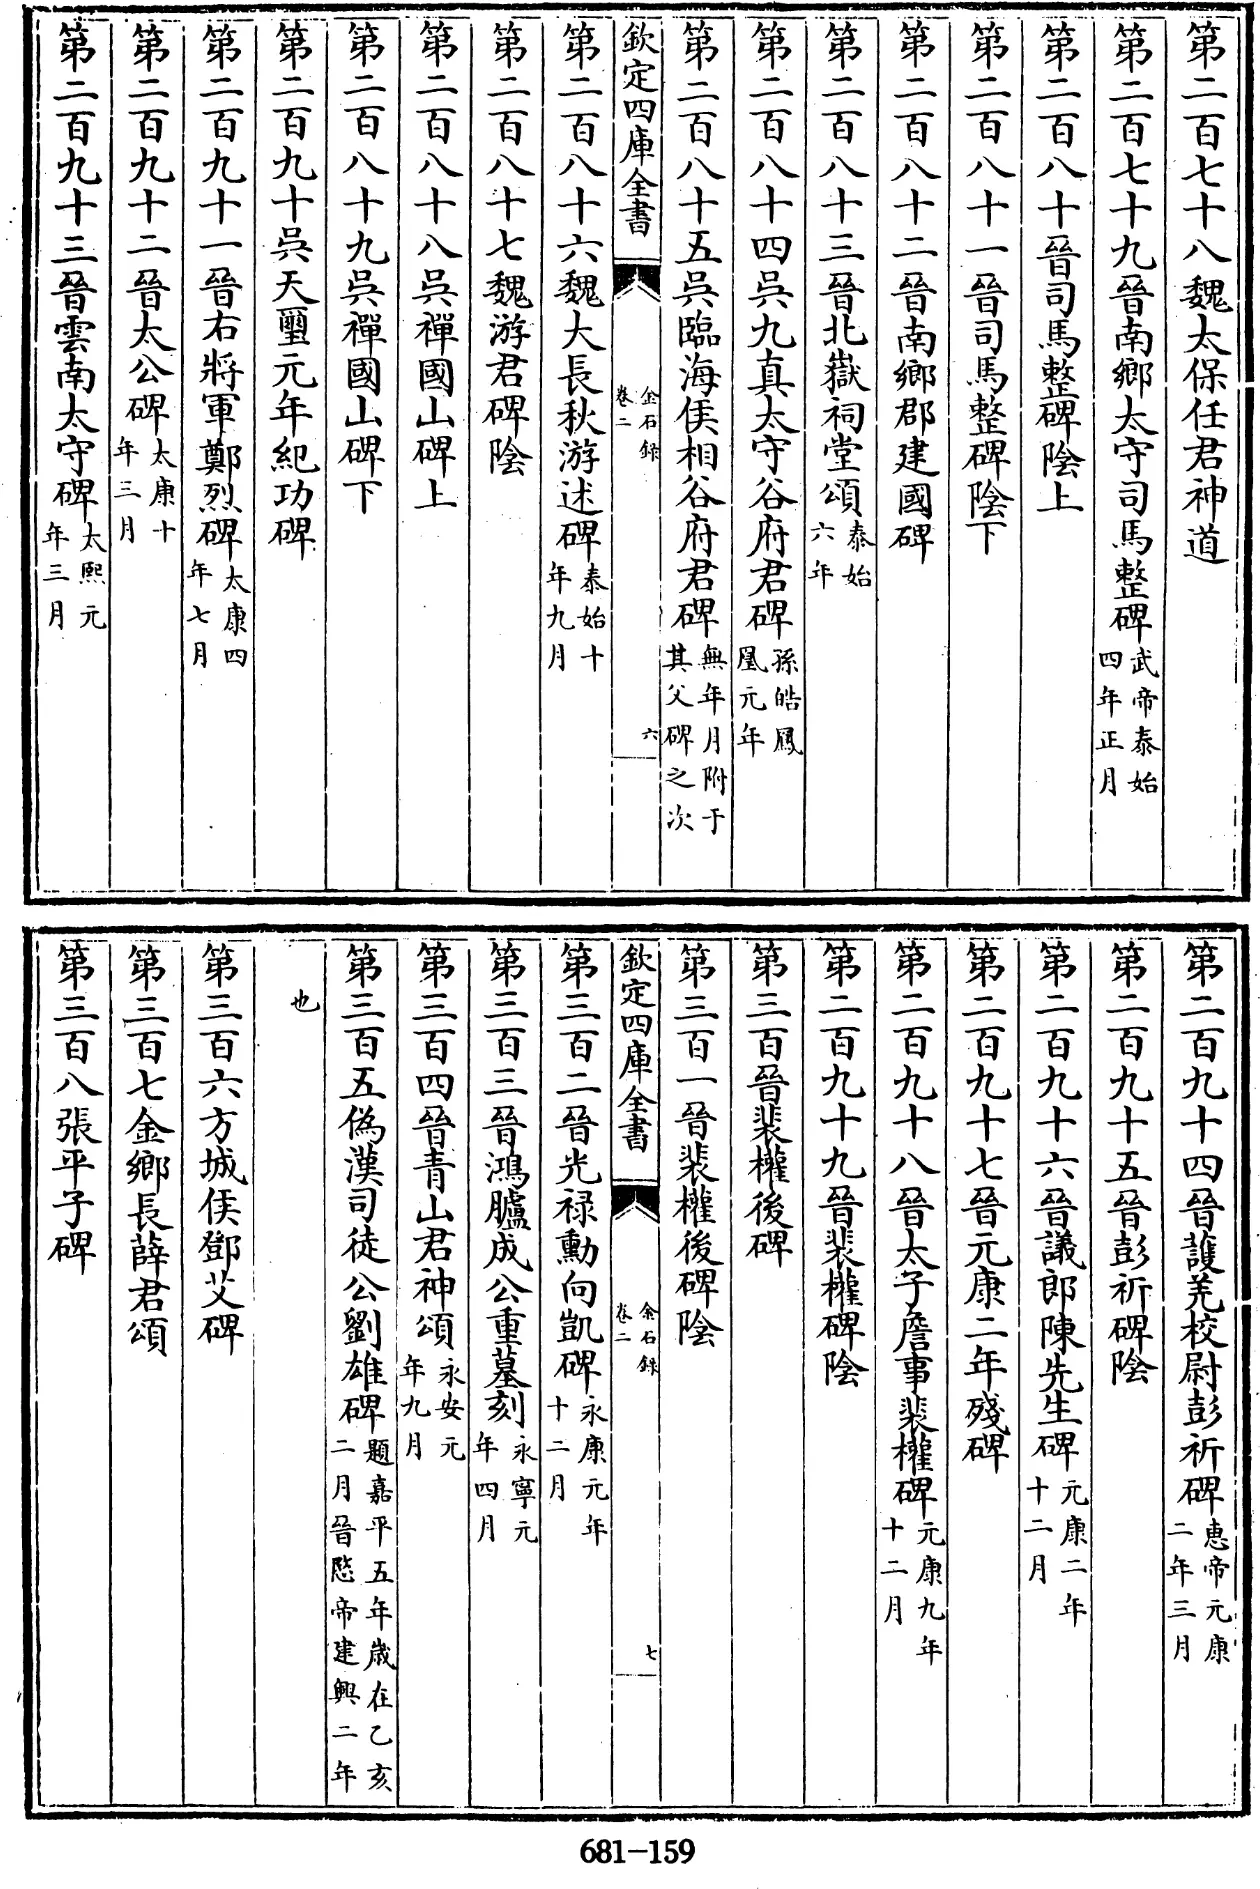 第二百七十八魏太保任君神道
第二百七十九晉南鄉太守司馬整碑武帝泰始四年正月
第二百八十晉司馬整碑陰上
第二百八十一晉司馬整碑陰下
第二百八十二晉南鄉郡建國碑
第二百八十三晉北嶽祠堂頌泰始六年
第二百八十四吳九真太守谷府君碑孫皓鳳凰元年
第二百八十五吳臨海侯相谷府君碑無年月附于其父碑之次
欽定四庫全書 金石錄卷二 六
第二百八十六魏大長秋游述碑泰始十年九月
第二百八十七魏游君碑陰
第二百八十八吳禪國山碑上
第二百八十九吳禪國山碑下
第二百九十吳天璽元年紀功碑
第二百九十一晉右將軍鄭烈碑太康四年七月
第二百九十二晉太公碑太康十年三月
第二百九十三晉雲南太守碑太熙元年三月
第二百九十四晉護羌校尉彭祈碑惠帝元康二年三月
第二百九十五晉彭祈碑陰
第二百九十六晉議郎陳先生碑元康二年十二月
第二百九十七晉元康二年殘碑
第二百九十八晉太子詹事裴權碑元康九年十二月
第二百九十九晉裴權碑陰
第三百晉裴權後碑
第三百一晉裴權後碑陰
欽定四庫全書 金石錄卷二 七
第三百二晉光禄勳向凱碑永康元年十二月
第三百三晉鴻臚成公重墓刻永寧元年四月
第三百四晉青山君神頌永安元年九月
第三百五偽漢司徒公劉雄碑題嘉平五年歲在乙亥二月晉愍帝建興二年
也
第三百六方城侯鄧艾碑
第三百七金鄉長薛君頌
第三百八張平子碑
681-159